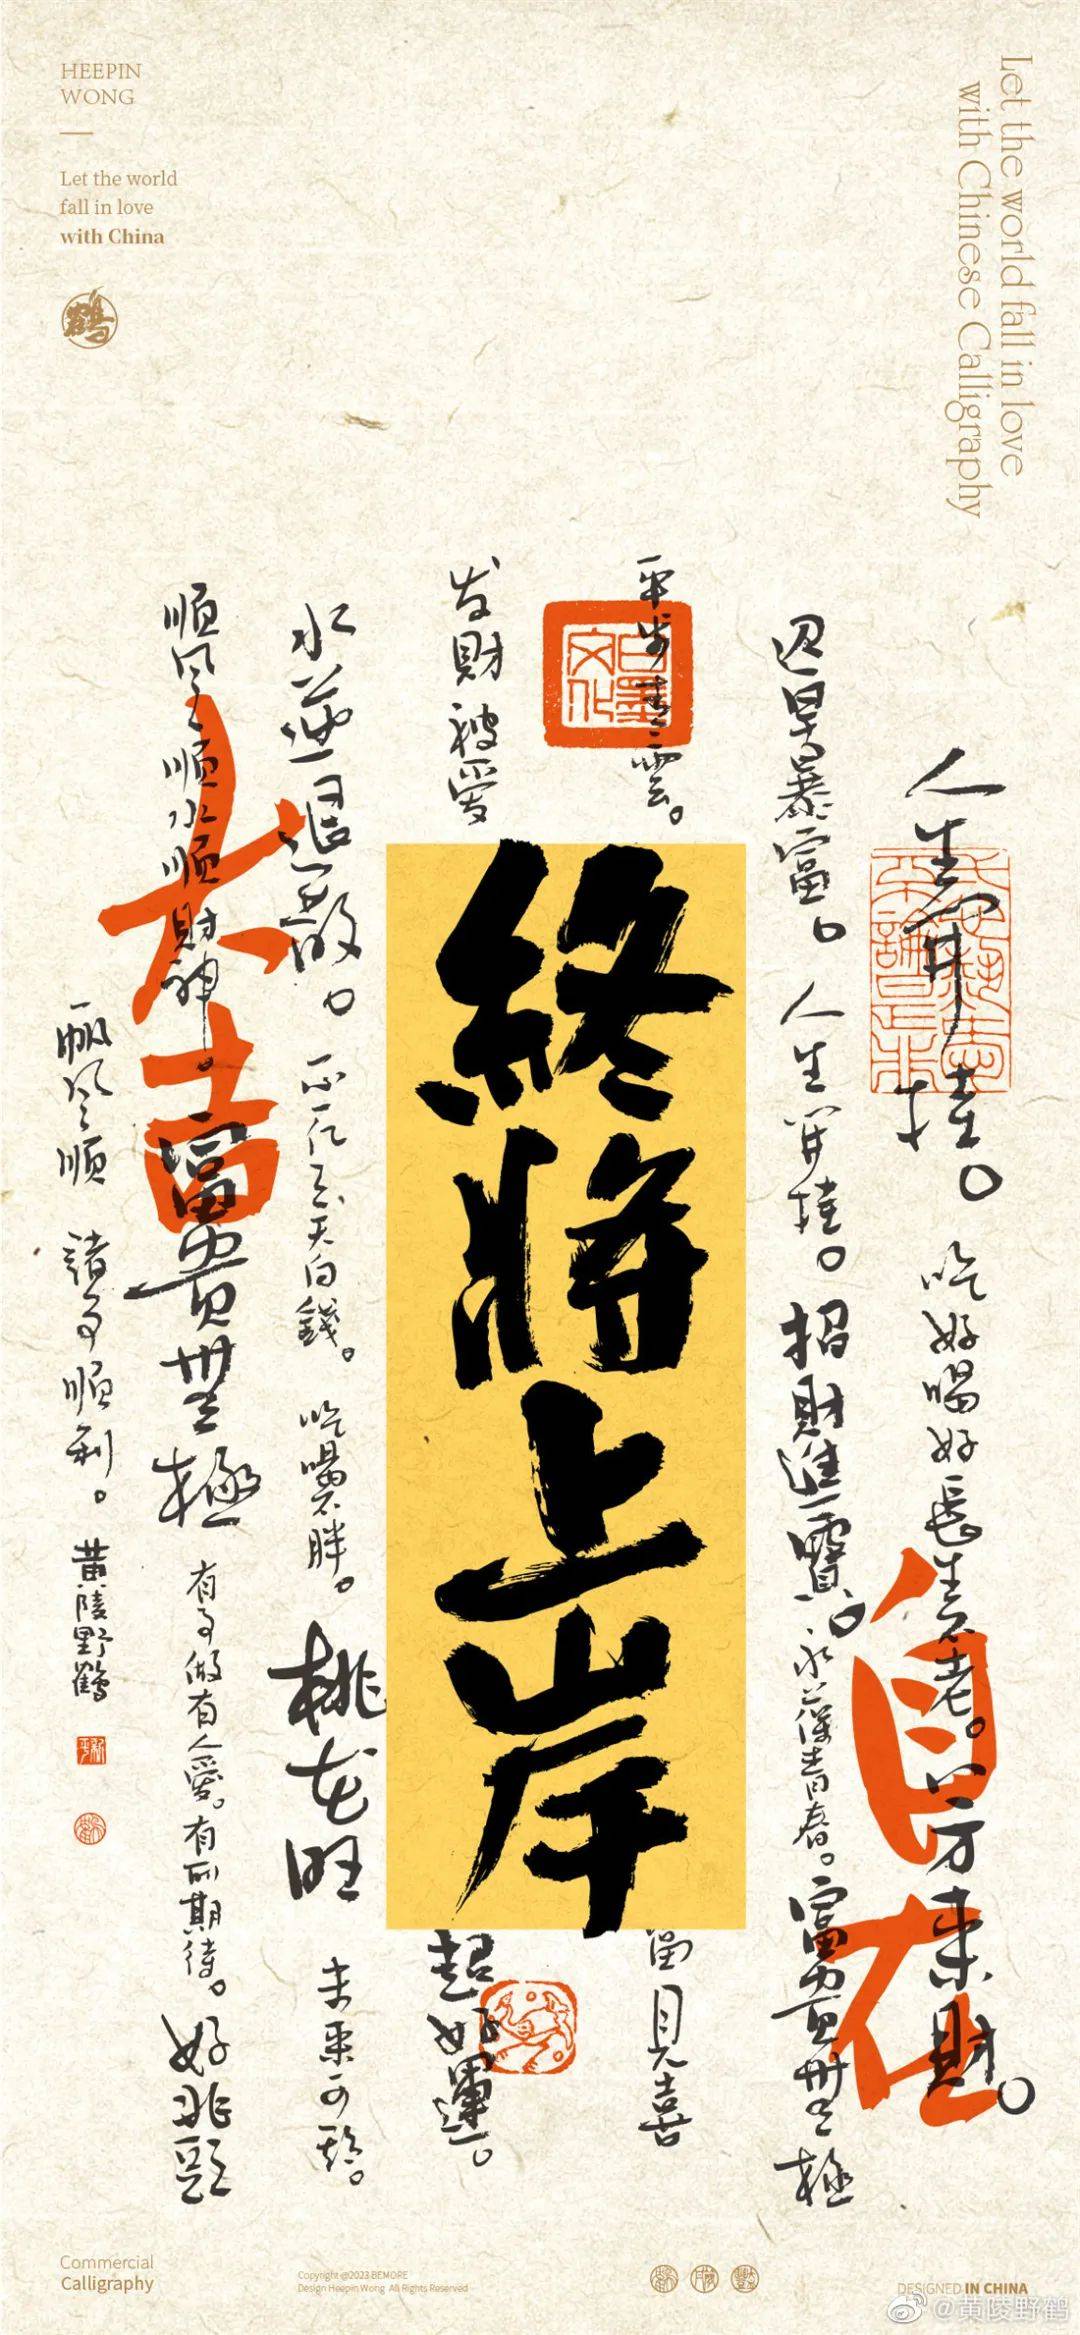 HEEPIN
WONG
Let the world
fall in love
with China
鶴
Let the world fall in love
with Chinese Calligraphy
人生開掛。吃好喝好長生不老。八方来財。
迅早暴富。人生開掛。招財進寶。永葆青春。富貴無極
平步青雲。
當見喜
白澤文化
終將上岸
发財被愛
超好運。
水逆退散。不行天天白錢。吃喝不胖。桃花旺
未來可期。
順風順水順財神。富貴無極
有事做有人愛。有所期待。好兆頭
一帆风順 諸事順利。
黄陵野鶴
大吉
自在
Commercial
Calligraphy
Copyright @2023 BEMORE
Design Heepin Wong All Rights Reserved
DESIGNED IN CHINA
@黄陵野鹤